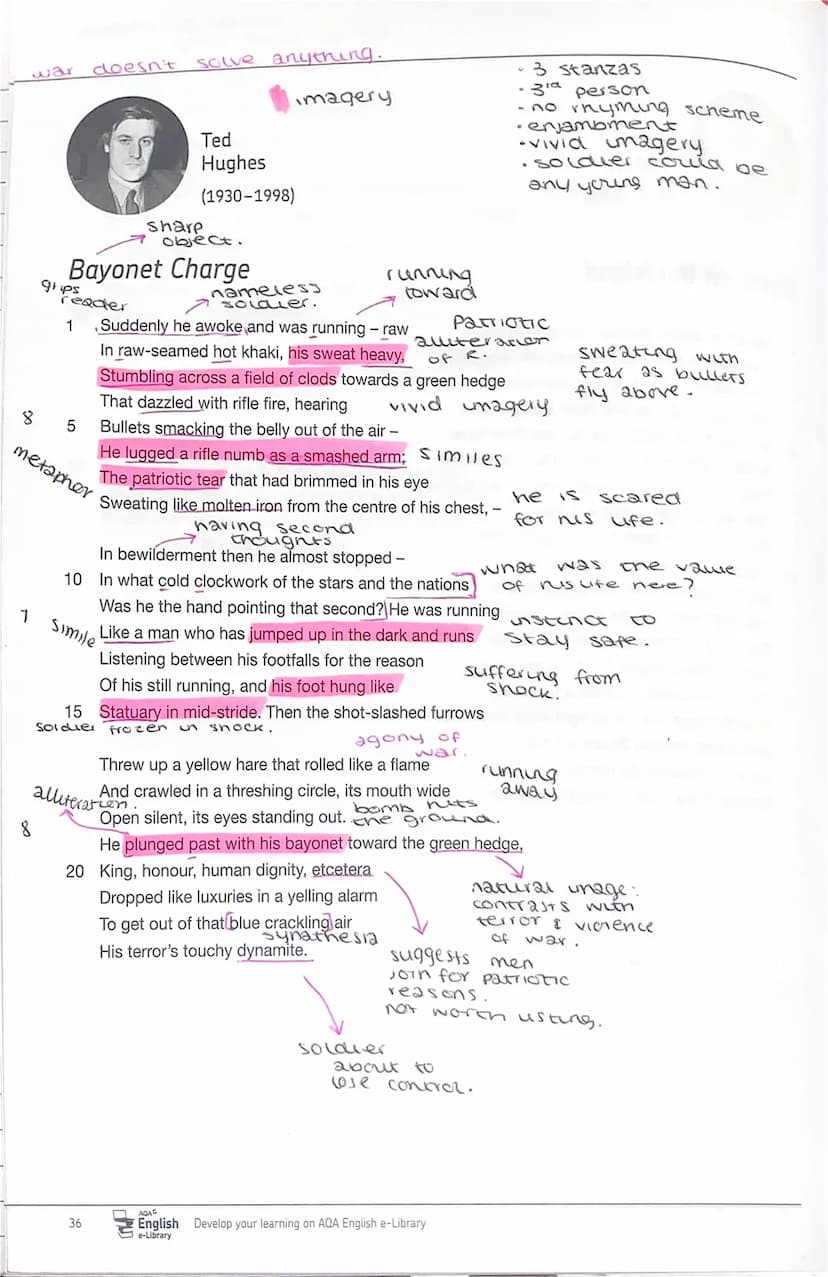 war doesn't solve anything.
imagery
· 3 stanzas
· 3rd person
· no rhyming scheme
· enjambment
· vivid imagery
· soldier could be
any young man.
Ted
Hughes
(1930–1998)
sharp
object.
Bayonet Charge
grips
reader
nameless
soldier.
running
toward
1 Suddenly he awoke and was running – raw
Patriotic
alliteration
of R.
In raw-seamed hot khaki, his sweat heavy,
Stumbling across a field of clods towards a green hedge
sweating with
fear as bullets
fly above.
That dazzled with rifle fire, hearing
vivid imagery
8
5 Bullets smacking the belly out of the air –
He lugged a rifle numb as a smashed arm;
similes
metaphor
The patriotic tear that had brimmed in his eye
Sweating like molten iron from the centre of his chest, –
he is scared
for his life.
having second
thoughts
In bewilderment then he almost stopped –
10 In what cold clockwork of the stars and the nations
what was the value
of his life here?
Was he the hand pointing that second? He was running
7
simile
Like a man who has jumped up in the dark and runs
instinct to
stay safe.
Listening between his footfalls for the reason
Of his still running, and his foot hung like
suffering from
shock.
15 Statuary in mid-stride. Then the shot-slashed furrows
soldier frozen in shock.
agony of
war.
Threw up a yellow hare that rolled like a flame
running
away
And crawled in a threshing circle, its mouth wide
alliteration.
bomb hits
the ground.
Open silent, its eyes standing out.
8
He plunged past with his bayonet toward the green hedge,
20 King, honour, human dignity, etcetera
natural image:
contrasts with
terror & violence
of war.
Dropped like luxuries in a yelling alarm
To get out of that blue crackling air
synathesia
His terror's touchy dynamite.
suggests men
join for patriotic
reasons.
not worth listing.
soldier
about to
lose control.
36
AQA
English
e-Library
Develop your learning on AQA English e-Library